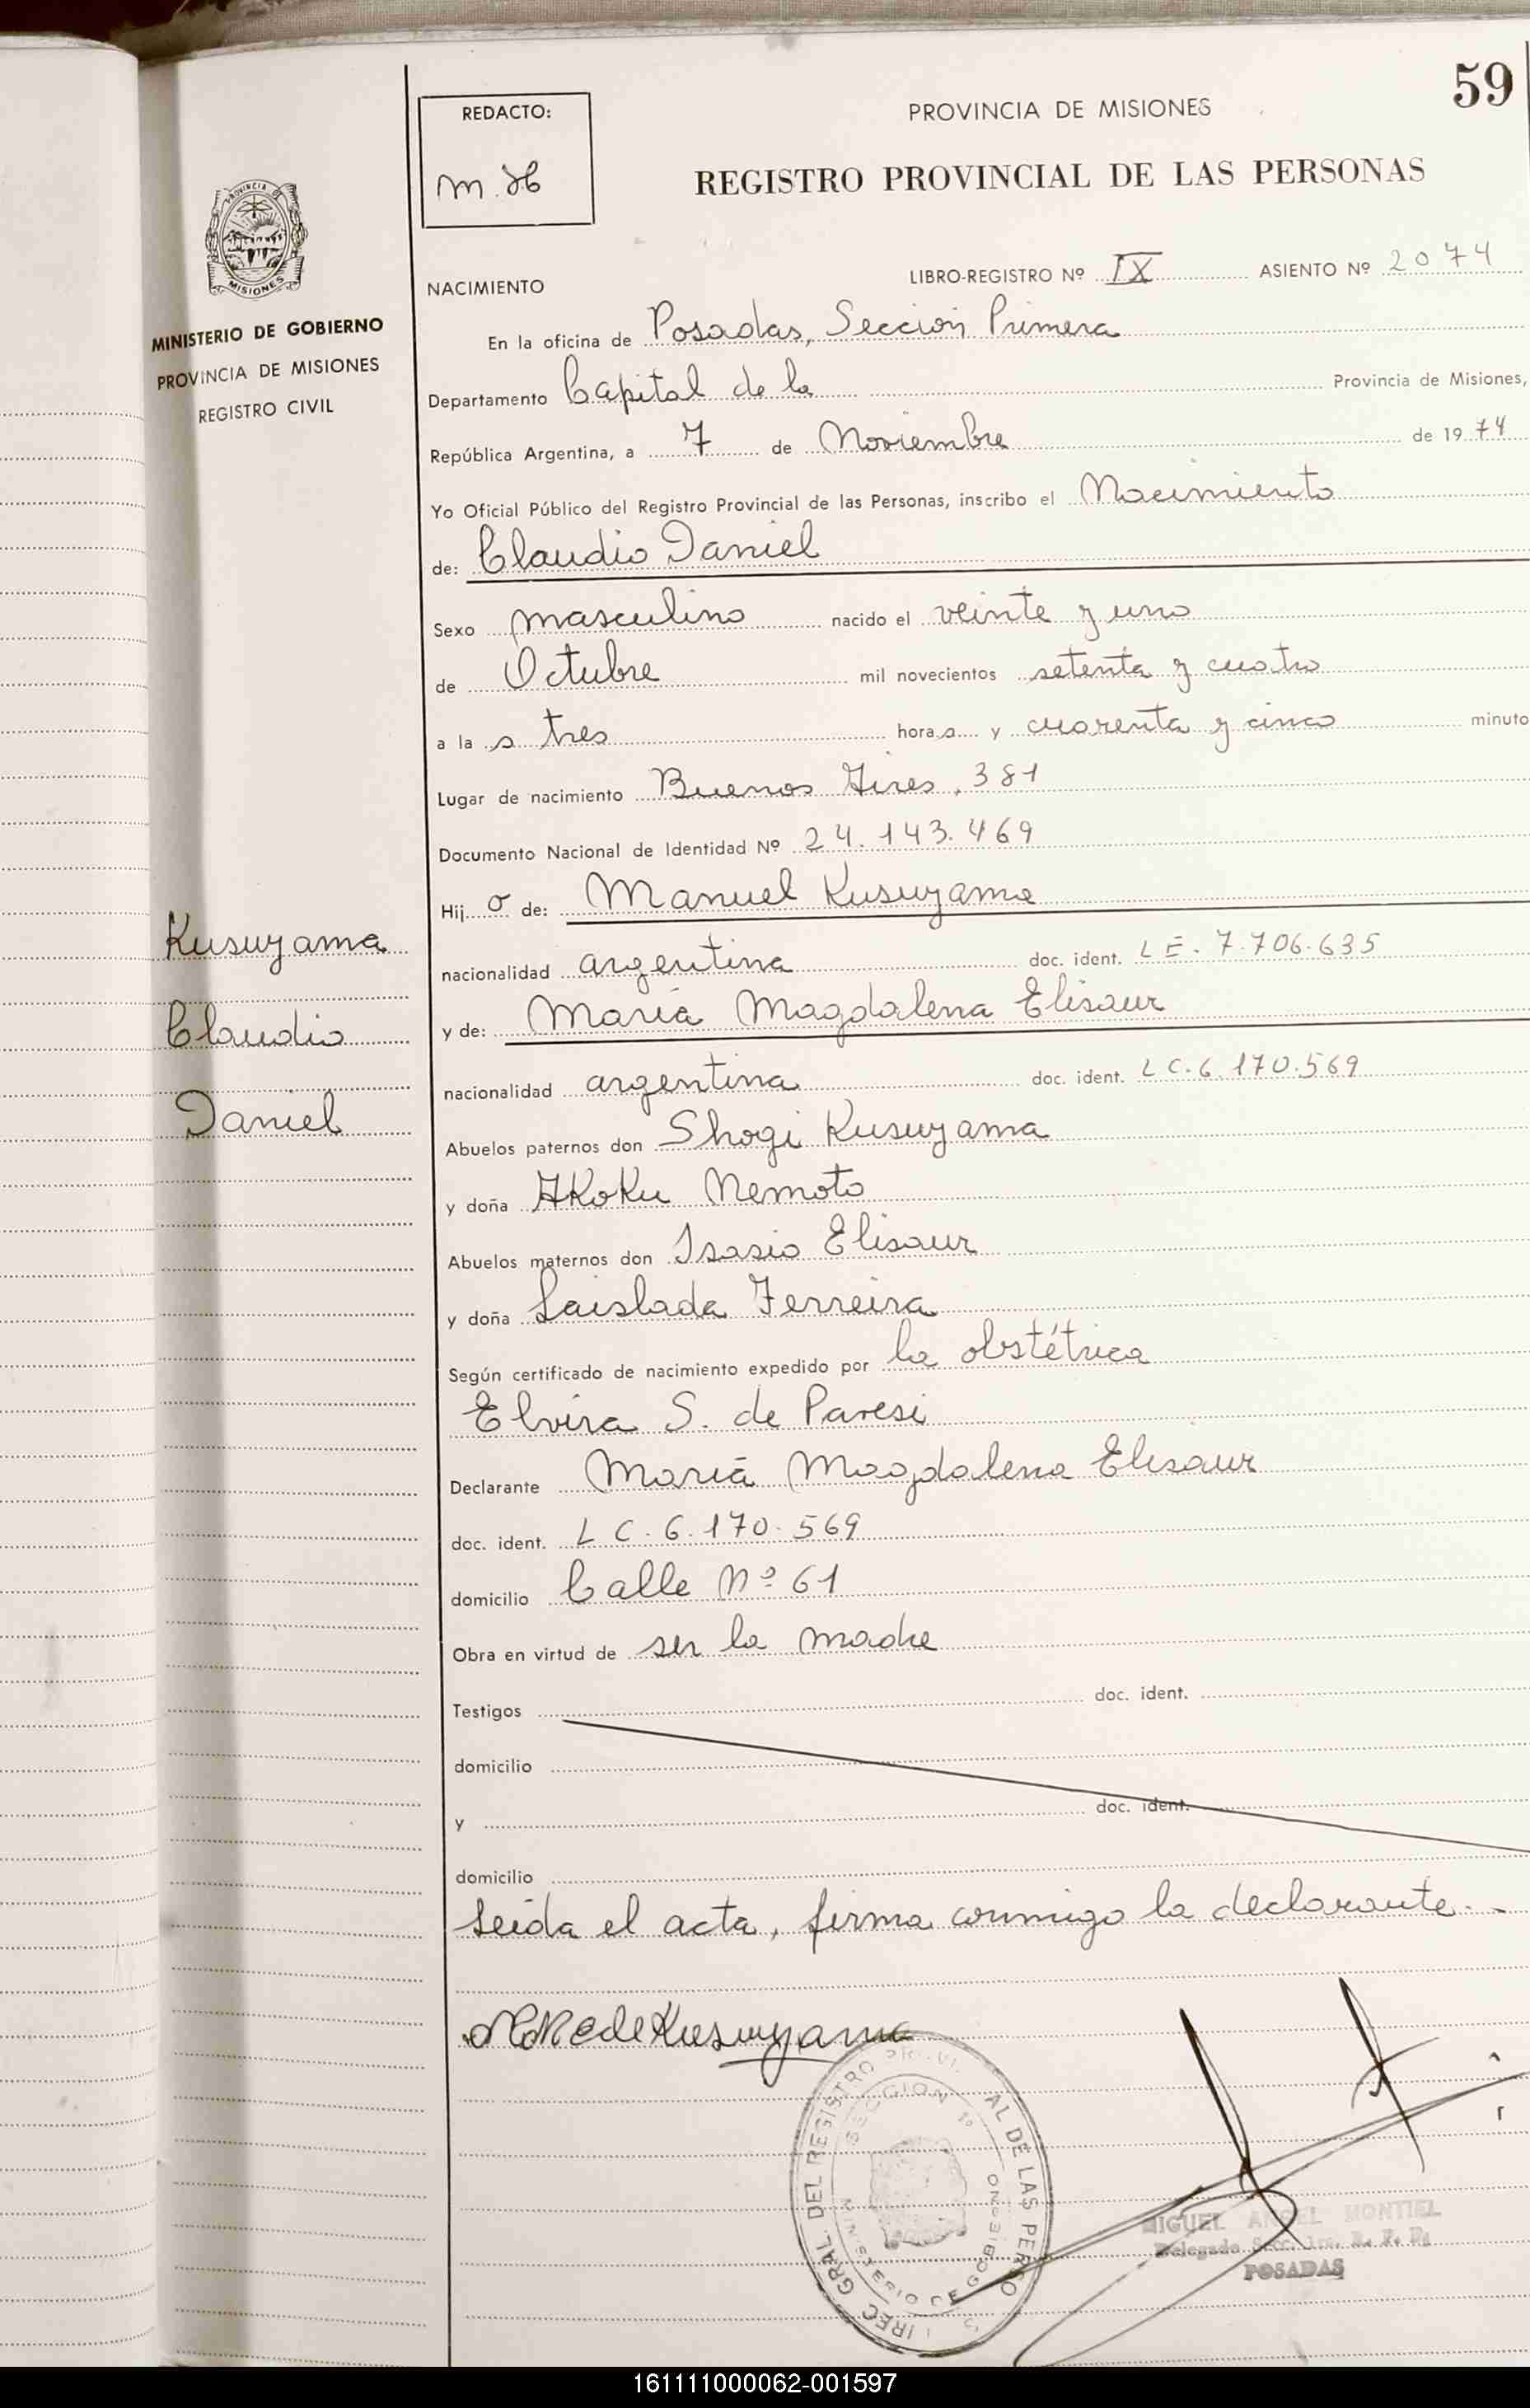 59
REDACTO:
m. H
PROVINCIA DE MISIONES
REGISTRO PROVINCIAL DE LAS PERSONAS
PROVINCIA DE
MISIONES
MINISTERIO DE GOBIERNO
PROVINCIA DE MISIONES
REGISTRO CIVIL
NACIMIENTO
LIBRO-REGISTRO Nº IX ASIENTO Nº 2074
En la oficina de Posadas, Sección Primera
Departamento Capital de la Provincia de Misiones,
República Argentina, a 7 de Noviembre de 1974
Yo Oficial Público del Registro Provincial de las Personas, inscribo el Nacimiento
de: Claudio Daniel
Sexo masculino nacido el veinte y uno
de Octubre mil novecientos setenta y cuatro
a la s tres hora s y cuarenta y cinco minuto
Lugar de nacimiento Buenos Aires, 381
Documento Nacional de Identidad Nº 24.143.469
Hij o de: Manuel Kusuyama
nacionalidad argentina doc. ident. LE. 7.706.635
y de: María Magdalena Elisaur
nacionalidad argentina doc. ident. LC. 6.170.569
Abuelos paternos don Shogi Kusuyama
y doña AKoKu Nemoto
Abuelos maternos don Isasio Elisaur
y doña Laislada Ferreira
Según certificado de nacimiento expedido por la obstétrica
Elvira S. de Paresi
Declarante María Magdalena Elisaur
doc. ident. LC. 6.170.569
domicilio Calle Nº 61
Obra en virtud de ser la madre
Testigos doc. ident.
domicilio
y doc. ident.
domicilio
Leída el acta, firma conmigo la declarante.-
Kusuyama
Claudio
Daniel
de Kusuyama
GRAL. DEL REGISTRO PROVI AL DE LAS PERSO
SECCION 1º
MINISTERIO DE GOBIERNO
MIGUEL ANGEL MONTIEL
Delegado Secc. 1ra. R. P. P.
POSADAS
161111000062-001597